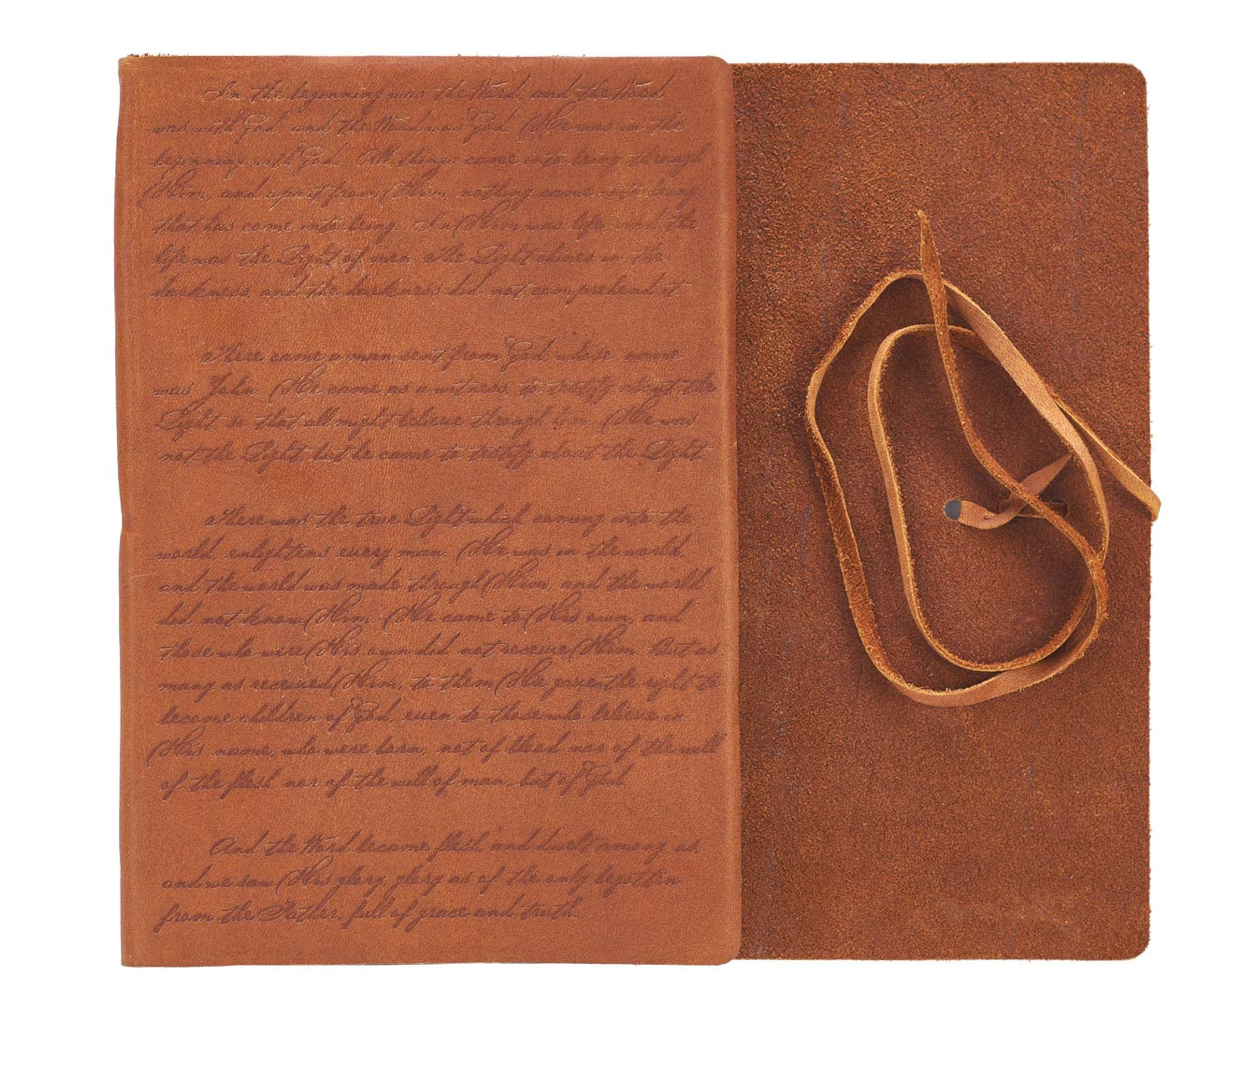 In the beginning was the Word, and the Word
was with God, and the Word was God. He was in the
beginning with God. All things came into being through
Him, and apart from Him nothing came into being
that has come into being. In Him was life, and the
life was the Light of men. The Light shines in the
darkness, and the darkness did not comprehend it.
There came a man sent from God, whose name
was John. He came as a witness, to testify about the
Light, so that all might believe through him. He was
not the Light, but he came to testify about the Light.
There was the true Light which, coming into the
world, enlightens every man. He was in the world,
and the world was made through Him, and the world
did not know Him. He came to His own, and
those who were His own did not receive Him. But as
many as received Him, to them He gave the right to
become children of God, even to those who believe in
His name, who were born, not of blood nor of the will
of the flesh nor of the will of man, but of God.
And the Word became flesh and dwelt among us,
and we saw His glory, glory as of the only begotten
from the Father, full of grace and truth.